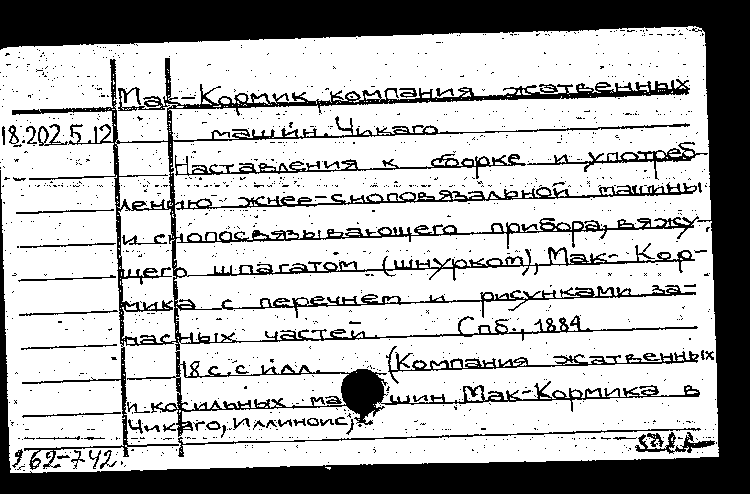 Мак-Кормик, компания жатвенных
18.202.5.12 машин. Чикаго
Наставления к сборке и употреб-
лению жнее-сноповязальной машины
и снопосвязывающего прибора, вяжу-
щего шпагатом (шнурком), Мак-Кор-
мика с перечнем и рисунками за-
пасных частей. Спб., 1884.
18 с. с илл. (Компания жатвенных
и косильных машин Мак-Кормика в
Чикаго, Иллинойс)
262-742.